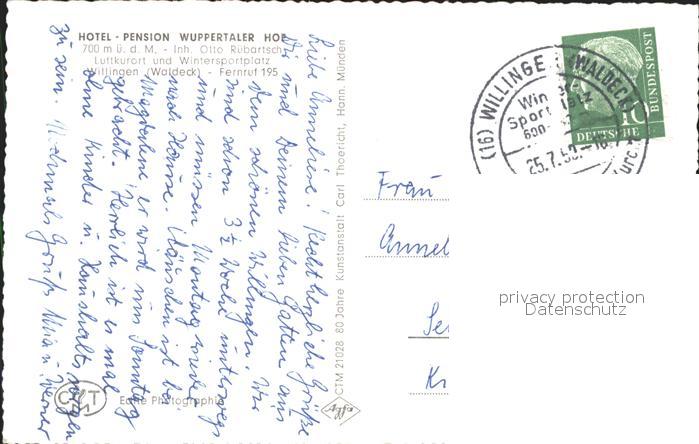 HOTEL - PENSION WUPPERTALER HOF
700 m ü. d. M. - Inh. Otto Rübartsch
Luftkurort und Wintersportplatz
Willingen (Waldeck) - Fernruf 195
Liebe Anneliese! Recht herzliche Grüße
Dir und Deinem lieben Gatten aus
dem schönen Willingen. Wir
sind schon 3½ Woche unterwegs
und müssen Montag wieder
nach Hause. Kläuschen ist bei
Magdalene er wird uns Sonntag
gebracht. Herrlich ist es mal
ohne Kinder u. Haushaltssorgen
zu sein. Nochmals Gruß Mia u. Werner
CTM 21028 80 Jahre Kunstanstalt Carl Thoericht, Hann. Münden
CTM
Echte Photographie
Agfa
(16) WILLINGEN (WALDECK)
25.7.58.-18
DEUTSCHE
BUNDESPOST
10
Frau
Annel
Se
Kr
privacy protection
Datenschutz